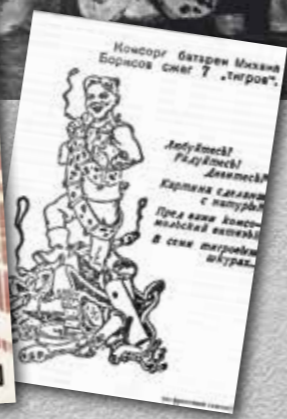 Комсорг батареи Михаил
Борисов сжег 7 „тигров“.
Любуйтесь!
Радуйтесь!
Дивитесь!
Картина сделана
с натуры!
Пред вами комсо-
мольский витязь
В семи тигровых
шкурах...